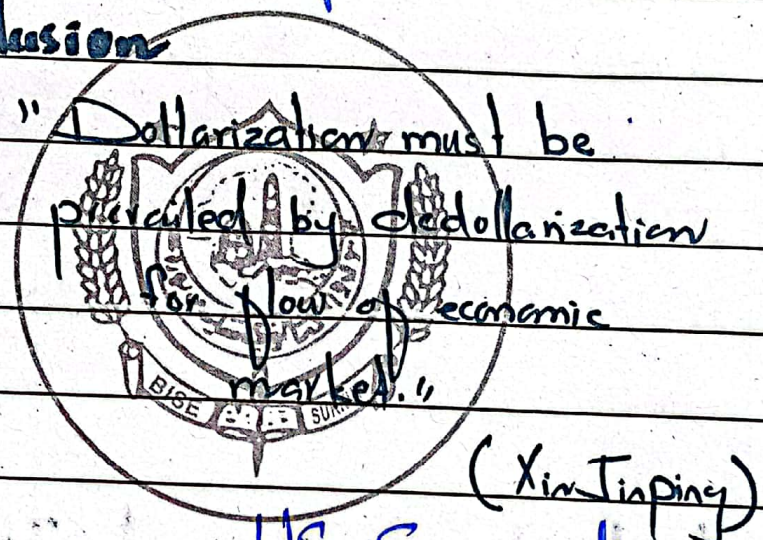 lusion
"Dollarization must be
prevailed by dedollarization
for flow of economic
market."
BISE SUKK
(Xin Jinping)